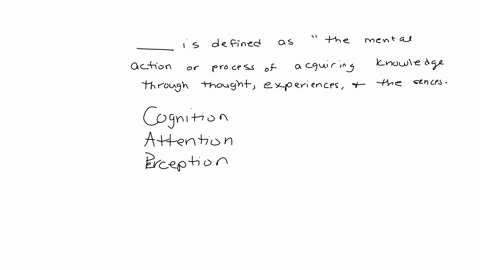 ____ is defined as " the mental
action or process of acquiring knowledge
through thought, experiences, + the sences.
Cognition
Attention
Perception